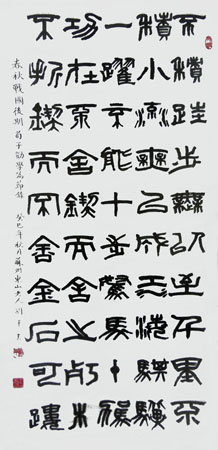 不積跬步無以至千里不
積小流無以成江海騏驥
一躍不能十步駑馬十駕
功在不舍鍥而舍之朽木
不折鍥而不舍金石可鏤
春秋戰國後期荀子勸學篇節錄 癸巳年秋月蘇州東山老人